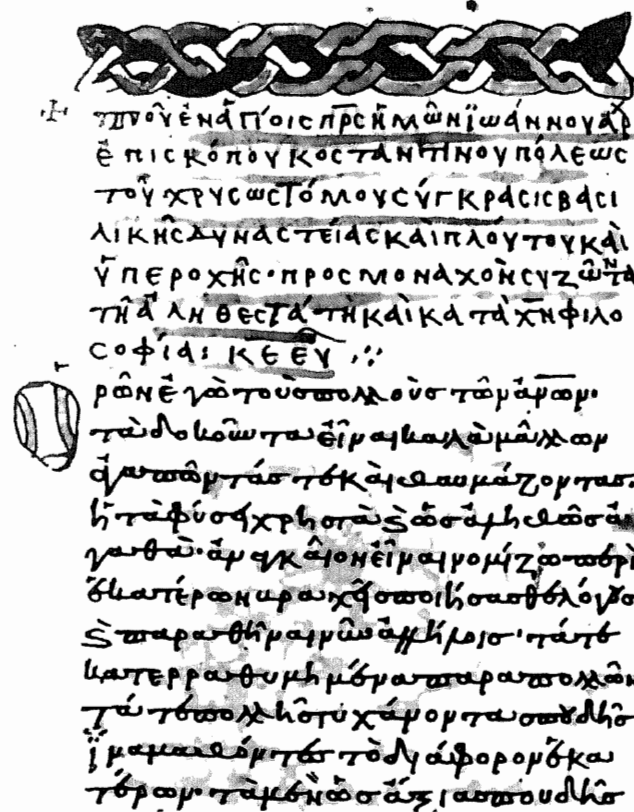 τοῦ ἐν ἁγίοις πρς ἡμῶν ἰωάννου ἀρχ
ἐπισκόπου κοσταντίνου πόλεως
τοῦ χρυσωστόμου σύγκρασις βασι
λικῆς δυναστείας καὶ πλούτου καὶ
ὑπεροχῆς· πρὸς μοναχὸν συζῶντα
τῆ ἀληθεστάτη καὶ κατὰ χν φιλο
σοφία: κε ευ
ρῶν ἐγὼ τοὺς πολλοὺς τῶν ἀνων·
τὰ δοκοῦντα εἶναι καλὰ μᾶλλον
ἀγαπῶντάς τε καὶ θαυμάζοντας·
ἢ τὰ φύσει χρηστὰ καὶ ὡς ἀληθῶς ἀ
γαθὰ· ἀναγκαῖον εἶναι νομίζω περὶ
ἑκατέρων βραχεῖς ποιήσασθε λόγους
καὶ παραθῆναι μὲν ἀλλήλοις· τά τε
κατερραθυμημένα παρὰ πολλῶν
τά τε πολλῆς τυχάνοντα σπουδῆς
ἵνα μαθόντες τὸ διάφορον ἑκα
τέρων· τὰ μὲν ὡς ἄξια σπουδῆς